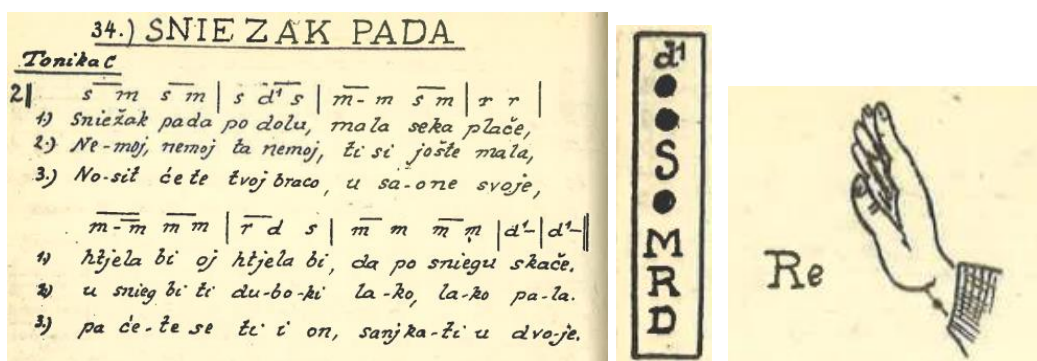 34.) SNIEZAK PADA
Tonika C
2| s m s m | s d¹ s | m- m s m | r r |
1.) Sniežak pada po dolu, mala seka plače,
2.) Ne-moj, nemoj ta nemoj, ti si jošte mala,
3.) No-sit će te tvoj braco, u sa-one svoje,
m-m m m | r d s | m m m m | d¹- | d¹- ||
1) htjela bi oj htjela bi, da po sniegu skače.
2) u snieg bi ti du-bo-ki la-ko, lako pa-la.
3.) pa će-te se ti i on, sanjka-ti u dvo-je.
d¹
S
M
R
D
Re